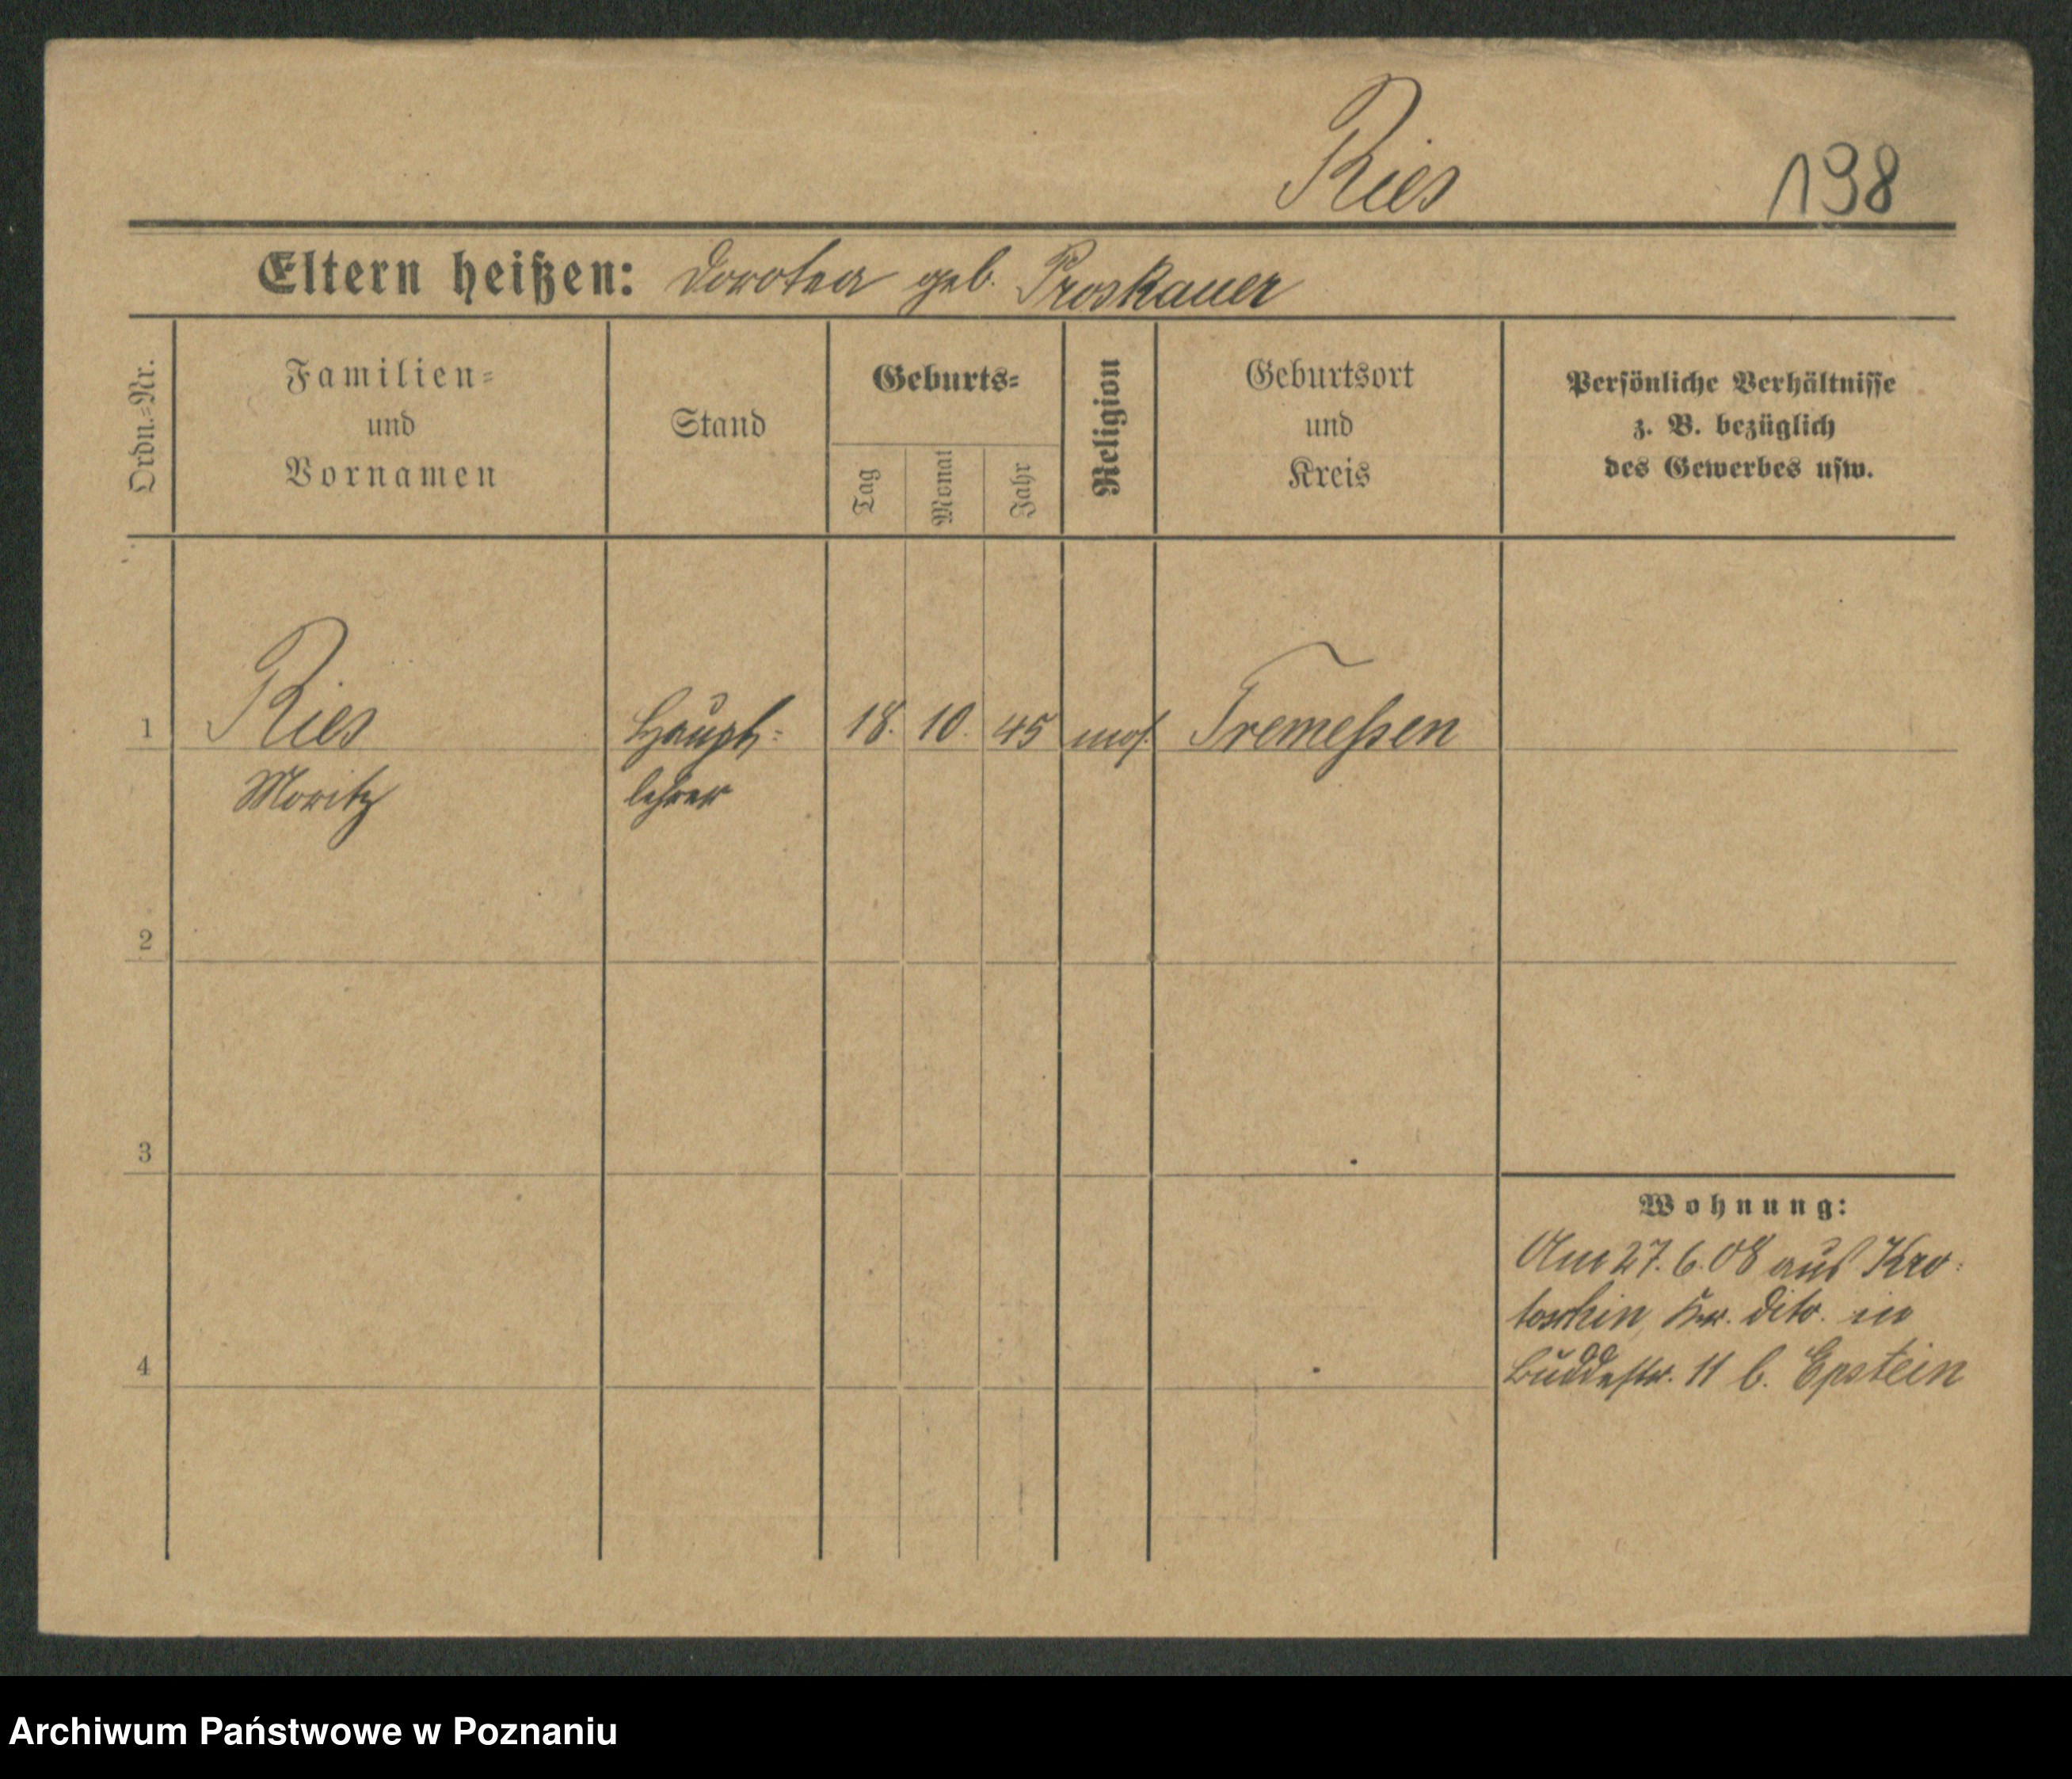 Ries
198
Eltern heißen: Dorotea geb. Proskauer
Ordn.=Nr.
Familien=
und
Vornamen
Stand
Geburts=
Tag
Monat
Jahr
Religion
Geburtsort
und
Kreis
Persönliche Verhältnisse
z. B. bezüglich
des Gewerbes usw.
1 Ries Haupt= 18. 10. 45 mos. Tremessen
Moritz lehrer
2
3
4
Wohnung:
Am 27.6.08 aus Kro-
toschin, Kr. dito. in
Buddestr. 11 b. Epstein
Archiwum Państwowe w Poznaniu